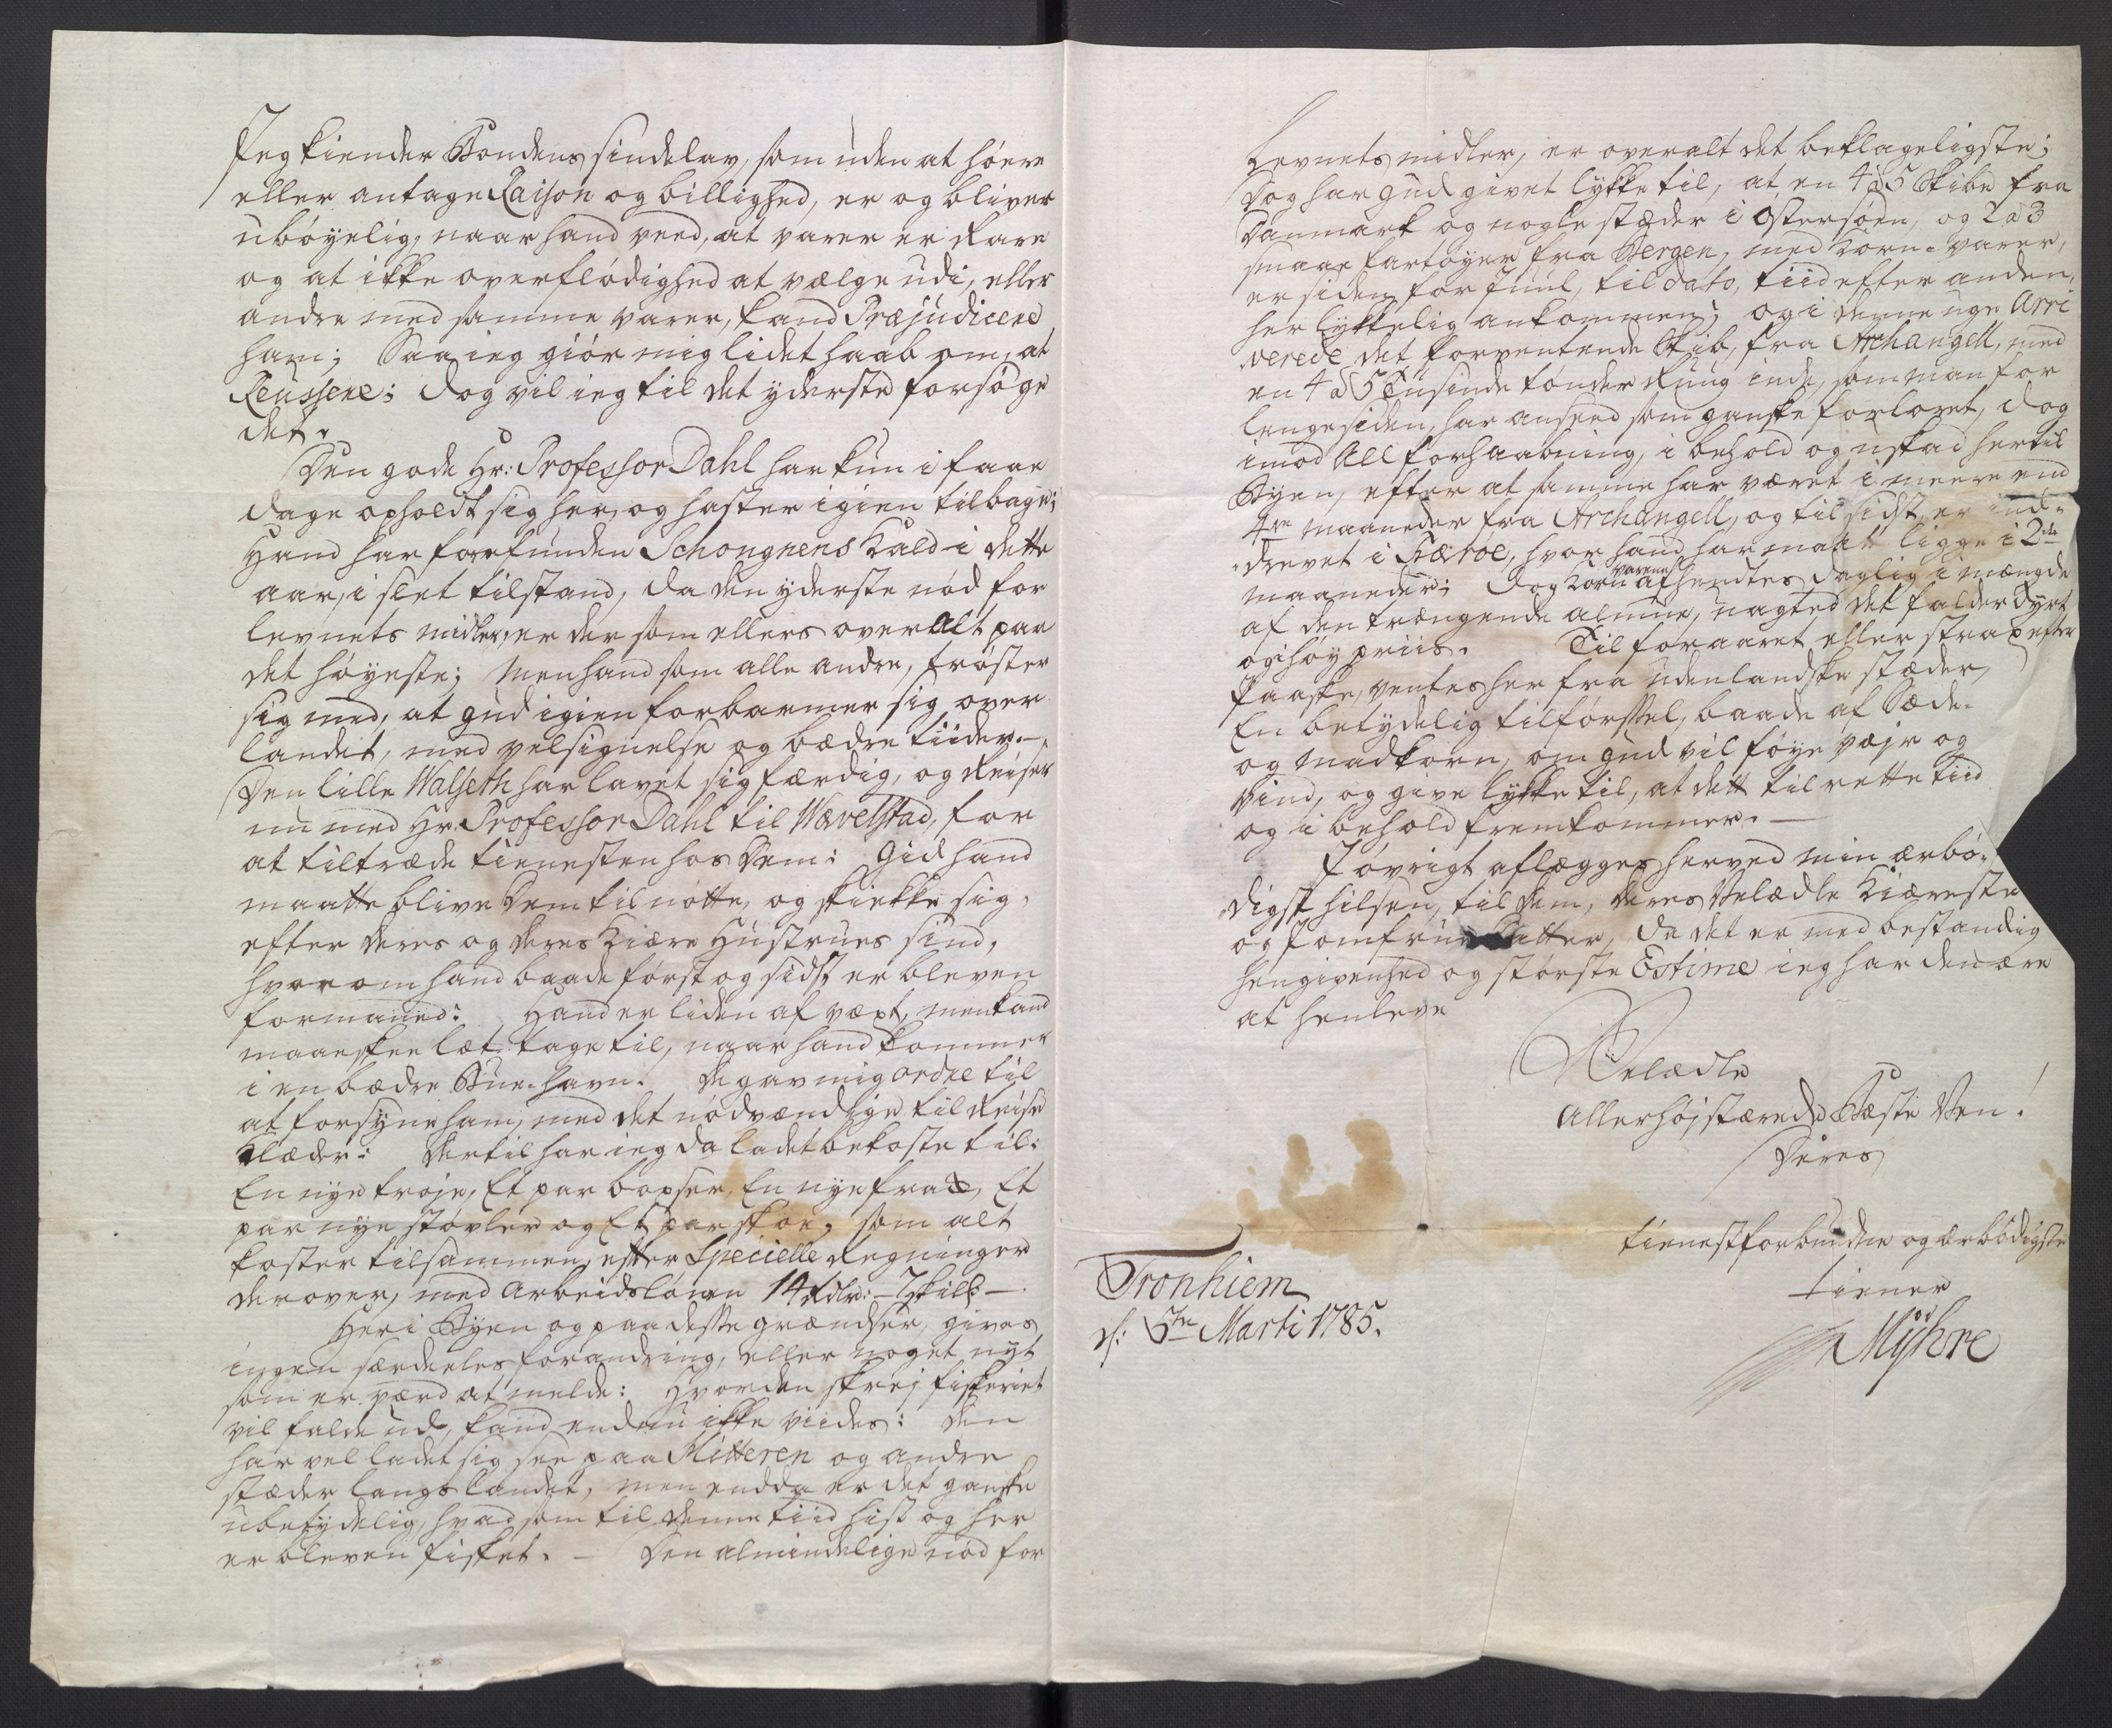 Jeg kiender Bondens sindelav, som uden at høere
eller antage Raison og billighed, er og bliver
ubøyelig, naar hand veed, at varer er Rare
og at ikke overflødighed at vælge udi, eller
andre med samme varer, kand Præjudicere
ham; Saa ieg giør mig lidet haab om, at
Reussere; dog vil ieg til det yderste forsøge
det.
Den gode Hr: Professor Dahl har kun i faae
dage opholdt sig her, og haster igien tilbage;
Hand har forefunden Schongnens Kald i dette
aar, i slet tilstand, da den yderste nød for
levnets midler, er der som ellers over alt paa
det høyeste; Men hand som alle andre, trøster
sig med, at gud igien forbarmer sig over
landet, med velsignelse og bædre tiider. —
Den lille Walseth har lavet sig færdig, og Reiser
nu med Hr. Professor Dahl til Wævelstad, for
at tiltræde tienesten hos Dem: Gid hand
maatte blive Dem til nøtte, og skikke sig,
efter deres og deres Kiære Hustrues sind,
hvorom hand baade først og sidst er bleven
formaned: Hand er liden af væxt, men kand
maaskee læt tage til, naar hand kommer
i en bædre Bue-havn. De gav mig ordre til
at forsyne ham, med det nødvændige til Reise
Klæder: Dertil har ieg da ladet bekoste til:
En nye trøje, Et par boxser, En nye frak, Et
par nye støvler og Et par skoe, som alt
koster tilsammen, efter Specielle Regninger
derover, med arbeidslønen 14 Rdlr: — 7 skill —.
Her i Byen og paa desse grændser, gives
ingen særdeeles forandring, eller noget nyt
som er værd at melde: Hvorden skrej fiskeriet
vil falde ud, kand endnu ikke viides: Den
har vel ladet sig see paa Hitteren og andre
stæder langs landet, men endda er det ganske
ubetydelig, hvad som til denne tiid hist og her
er bleven fisket. — Den almindelige nød for
Levnets midler, er overalt det beklageligste;
Dog har gud givet lykke til, at en 4 à 5 Skibe fra
Danmark og nogle stæder i Østersøen, og 2 à 3
smaae fartøyer fra Bergen, med Korn-varer,
er siden for Juul, til dato, tiid efter anden,
her lykkelig ankommen; og i denne uge Arri
verede det forventende Skib, fra Archangell, med
en 4 à 5 Tusinde tønder Ruug inde, som man for
lenge siden, har anseed som ganske forloret, dog
imod All forhaabning, i behold og uskad hertil
Byen, efter at samme har været i meere end
4re maaneder fra Archangell, og til sidst er ind-
drevet i Færøe, hvor hand har maatt ligge i 2de
maaneder; Dog Korn varene afhendtes daglig i mængde
af den trængende almue, uagted det falder dyrt
og i høy priis. Til foraaret eller strax efter
Paaske, ventes her fra udenlandske stæder,
En betydelig tilførssel, baade af Sæde-
og Madkorn, om gud vil føye vejr og
vind, og give lykke til, at dett til rette tiid
og i behold fremkommer. —
J øvrigt aflægges herved min ærbø-
digst hilsen, til dem, deres Velædle Kiæreste
og Jomfrue, da det er med bestandig
hengivenhed og største Estime ieg har den ære
at henleve
Velædle
Allerhøjstærede Bæste Ven!
Deres
tienestforbundne og ærbødigste
tiener
Mÿhre
Tronhiem
d: 5te Marti 1785.